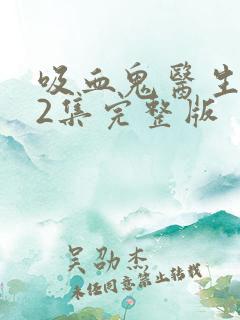 吸血鬼醫生
2集完整版
吴劭杰
未经同意禁止转载